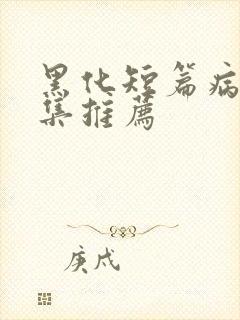 黑化短篇病
集推薦
庚戌